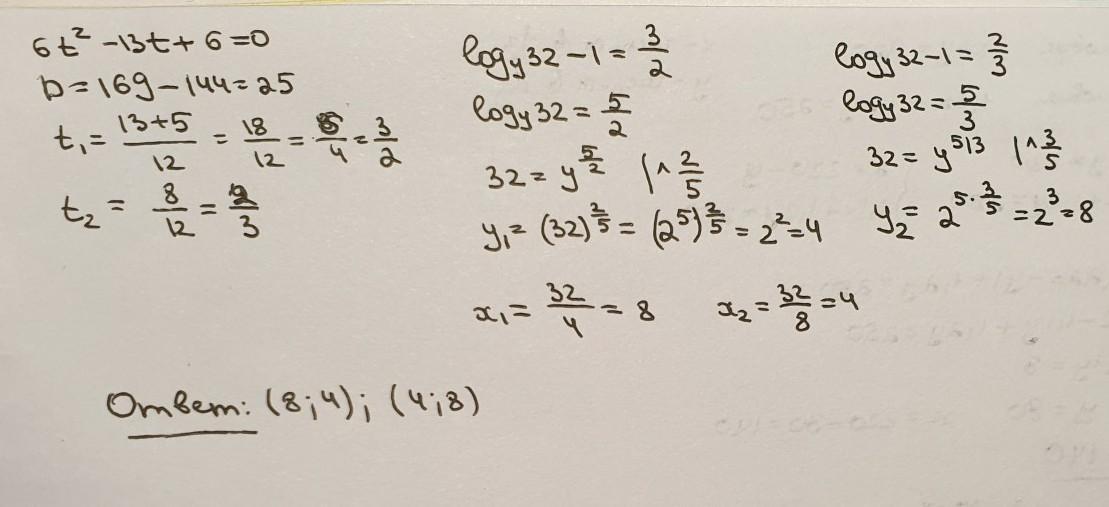 6t² - 13t + 6 = 0
D = 169 - 144 = 25
t₁ = (13+5)/12 = 18/12 = 6/4 = 3/2
t₂ = 8/12 = 2/3
log_y 32 - 1 = 3/2
log_y 32 = 5/2
32 = y^(5/2) |^ 2/5
y₁ = (32)^(2/5) = (2⁵)^(2/5) = 2² = 4
log_y 32 - 1 = 2/3
log_y 32 = 5/3
32 = y^(5/3) |^ 3/5
y₂ = 2^(5·3/5) = 2³ = 8
x₁ = 32/4 = 8
x₂ = 32/8 = 4
Ответ: (8;4); (4;8)